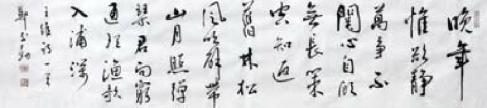 晚年
惟好静
萬事不
關心自顧
無長策
空知返
舊林松
風吹解帶
山月照彈
琴君問窮
通理漁歌
入浦深
王維詩一首